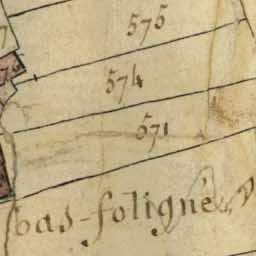 575
574
571
bas-foligné